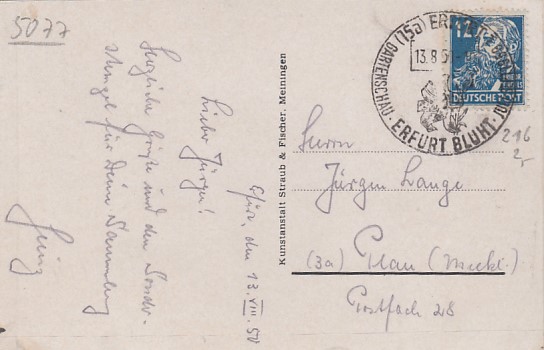 5077
Erfurt, den 13.VIII.50
Lieber Jürgen!
Herzliche Grüße und den Sonder-
stempel für Deine Sammlung
Heinz
Kunstanstalt Straub & Fischer, Meiningen
12
DEUTSCHE POST
13.8.50
GARTENSCHAU · ERFURT BLÜHT ·
216
2,-
Herrn
Jürgen Lange
(3a) Plau (Meckl.)
Postfach 28